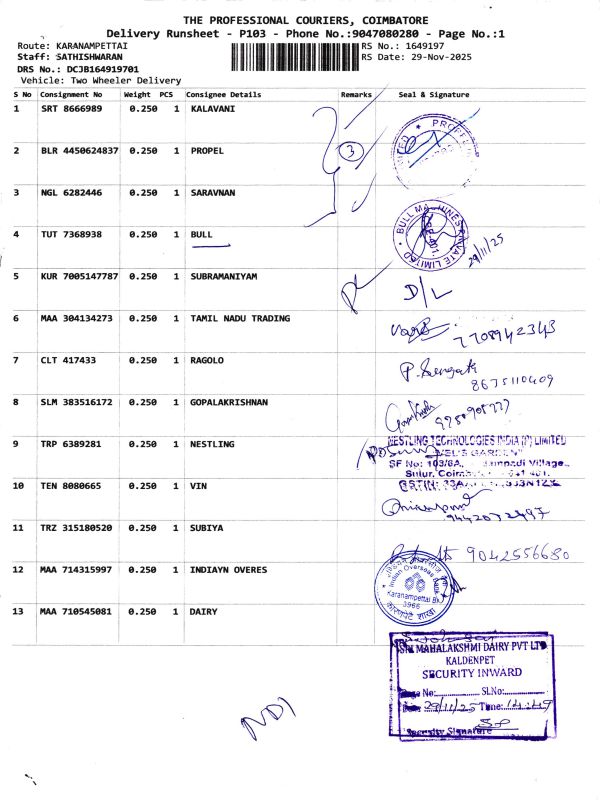 THE PROFESSIONAL COURIERS, COIMBATORE
Delivery Runsheet - P103 - Phone No.:9047080280 - Page No.:1
Route: KARANAMPETTAI RS No.: 1649197
Staff: SATHISHWARAN RS Date: 29-Nov-2025
DRS No.: DCJB164919701
Vehicle: Two Wheeler Delivery
S No Consignment No Weight PCS Consignee Details Remarks Seal & Signature
1 SRT 8666989 0.250 1 KALAVANI
2 BLR 4450624837 0.250 1 PROPEL 3
3 NGL 6282446 0.250 1 SARAVNAN
4 TUT 7368938 0.250 1 BULL BULL MACHINES PRIVATE LIMITED 29/11/25
5 KUR 7005147787 0.250 1 SUBRAMANIYAM D/L
6 MAA 304134273 0.250 1 TAMIL NADU TRADING 7708942343
7 CLT 417433 0.250 1 RAGOLO 8675110409
8 SLM 383516172 0.250 1 GOPALAKRISHNAN
9 TRP 6389281 0.250 1 NESTLING NESTLING TECHNOLOGIES INDIA (P) LIMITED
SF No: 103/8A, Village.,
Sulur,
GSTIN:
10 TEN 8080665 0.250 1 VIN
11 TRZ 315180520 0.250 1 SUBIYA 9042556680
12 MAA 714315997 0.250 1 INDIAYN OVERES Indian Overseas Bank
Karanampettai Br.
3966
13 MAA 710545081 0.250 1 DAIRY
SRI MAHALAKSHMI DAIRY PVT LTD
KALDENPET
SECURITY INWARD
Page No: SI.No:
Date: 29/11/25 Time: 14:49
Security Signature